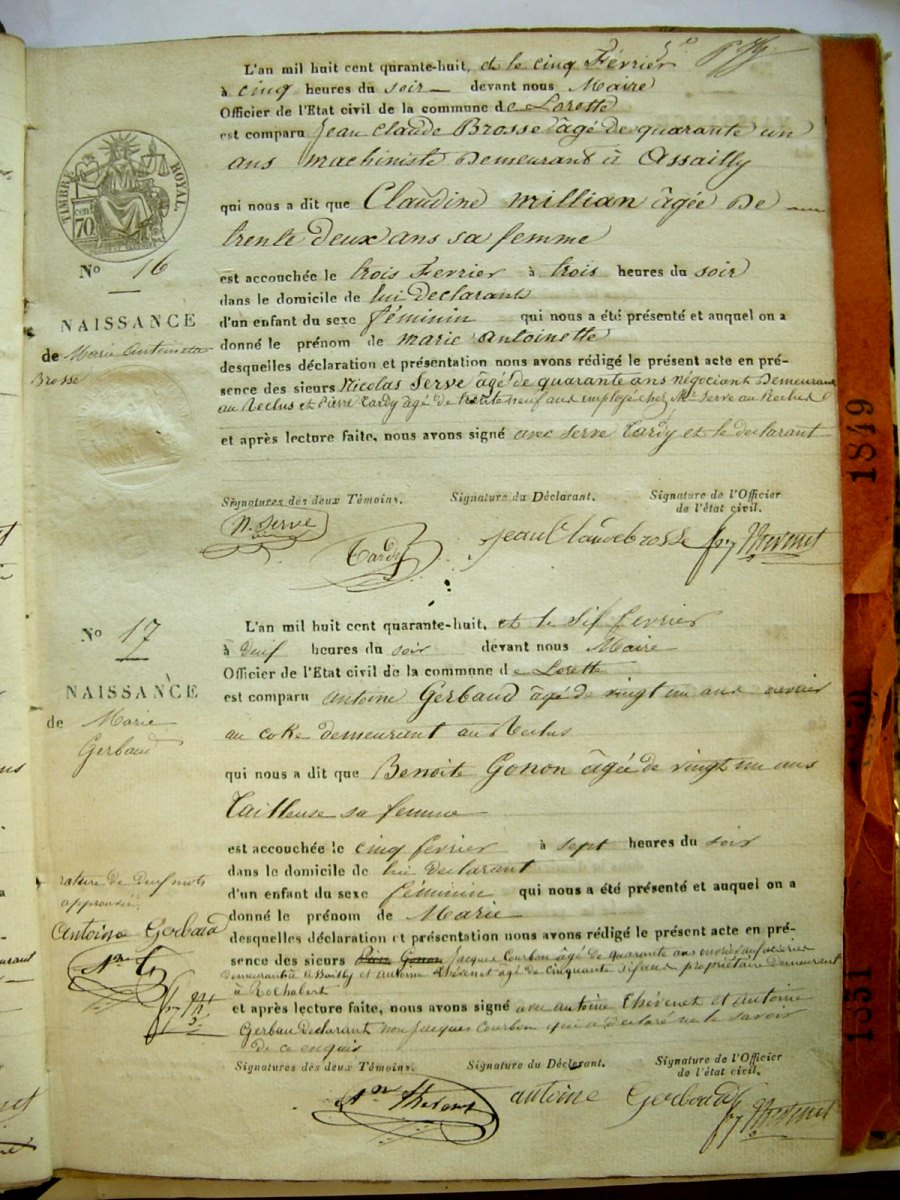 L'an mil huit cent qurante-huit, et le cinq Février
à cinq heures du soir devant nous Maire
Officier de l'Etat civil de la commune de Lorette
est comparu Jean Claude Brosse âgé de quarante un
ans machiniste demeurant à Assailly
qui nous a dit que Claudine millian âgée de
trente deux ans sa femme
TIMBRE ROYAL.
70 cent
No 16
est accouchée le trois Fevrier à trois heures du soir
dans le domicile de lui declarant
NAISSANCE
d'un enfant du sexe féminin qui nous a été présenté et auquel on a
de Marie Antoinette
donné le prénom de marie antoinette
Brosse
desquelles déclaration et présentation nous avons rédigé le présent acte en pré-
sence des sieurs Nicolas Serve âgé de quarante ans négociant Demeurant
au Reclus et Pierre Tardy âgé de trente neuf ans employé chez Mr Serve au Reclus
et après lecture faite, nous avons signé avec Serve Tardy et le declarant
Signatures des deux Témoins. Signature du Déclarant. Signature de l'Officier
de l'état civil.
N. Serve
Tardy
jean Claude brosse
Thevenet
No 17
L'an mil huit cent quarante-huit, et le sif fevrier
à deuf heures du soir devant nous Maire
Officier de l'Etat civil de la commune de Lorette
NAISSANCE
est comparu antoine Gerbaud âgé de vingt un ans ouvrier
de Marie
Gerbaud
au coke demeurant au Reclus
qui nous a dit que Benoite Gonon âgée de vingt un ans
Tailleuse sa femme
est accouchée le cinq fevrier à sept heures du soir
dans le domicile de lui declarant
rature de deuf mots
approuvée
d'un enfant du sexe féminin qui nous a été présenté et auquel on a
donné le prénom de Marie
Antoine Gerbaud
desquelles déclaration et présentation nous avons rédigé le présent acte en pré-
sence des sieurs Jacques Courbon âgé de quarante ans ouvrier
demeurant à Assailly et antoine thévenet agé de cinquante sif ans propriétaire demeurant
à Rochabert
et après lecture faite, nous avons signé avec antoine Thévenet et antoine
Gerbau Declarant non Jacques Courbon qui a déclaré ne le savoir
de ce enquis
Signatures des deux Témoins. Signature du Déclarant. Signature de l'Officier
de l'état civil.
antoine Gerbaud
Thevenet
1849
1851